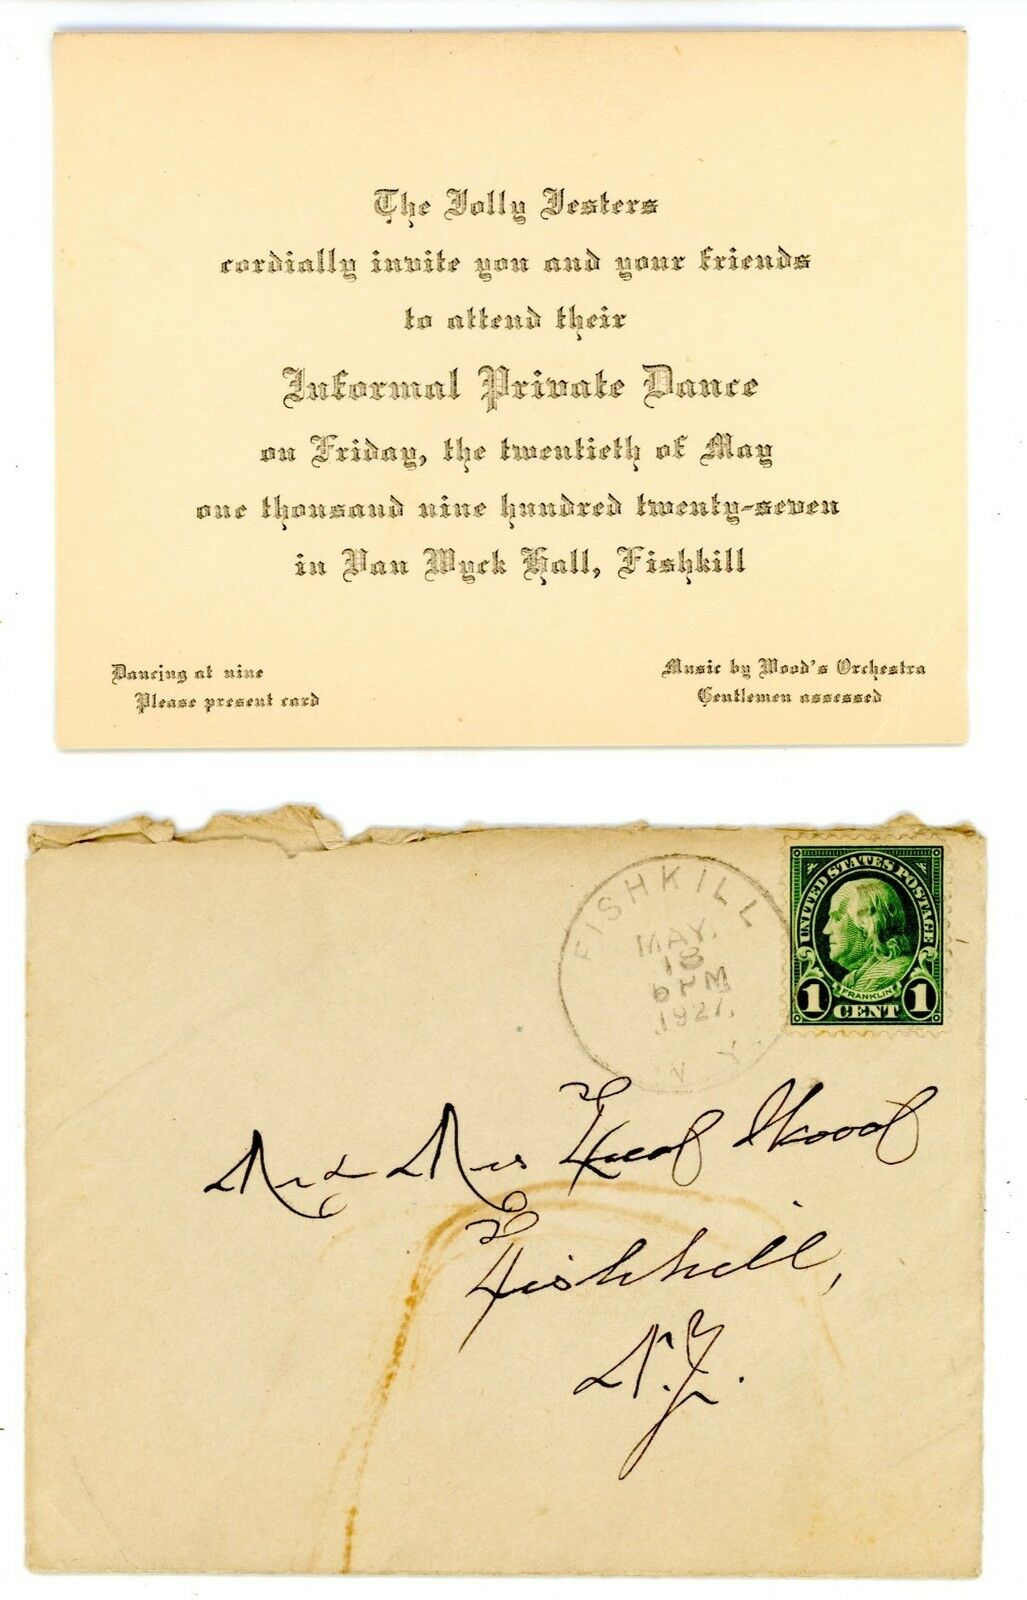 The Jolly Jesters
cordially invite you and your friends
to attend their
Informal Private Dance
on Friday, the twentieth of May
one thousand nine hundred twenty-seven
in Van Wyck Hall, Fishkill
Dancing at nine
Please present card
Music by Wood's Orchestra
Gentlemen assessed
FISHKILL
MAY.
18
6 PM
1927.
N. Y.
UNITED STATES POSTAGE
FRANKLIN
1 CENT 1
Mr & Mrs
Fishkill,
N.Y.